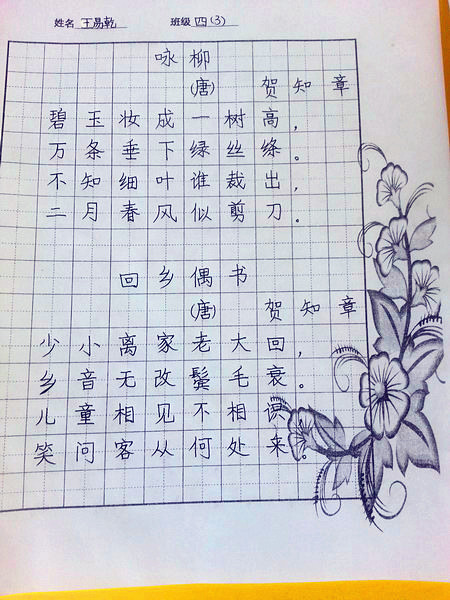 姓名 王易乾 班级 四(3)
咏柳
(唐) 贺知章
碧玉妆成一树高，
万条垂下绿丝绦。
不知细叶谁裁出，
二月春风似剪刀。
回乡偶书
(唐) 贺知章
少小离家老大回，
乡音无改鬓毛衰。
儿童相见不相识
笑问客从何处来。